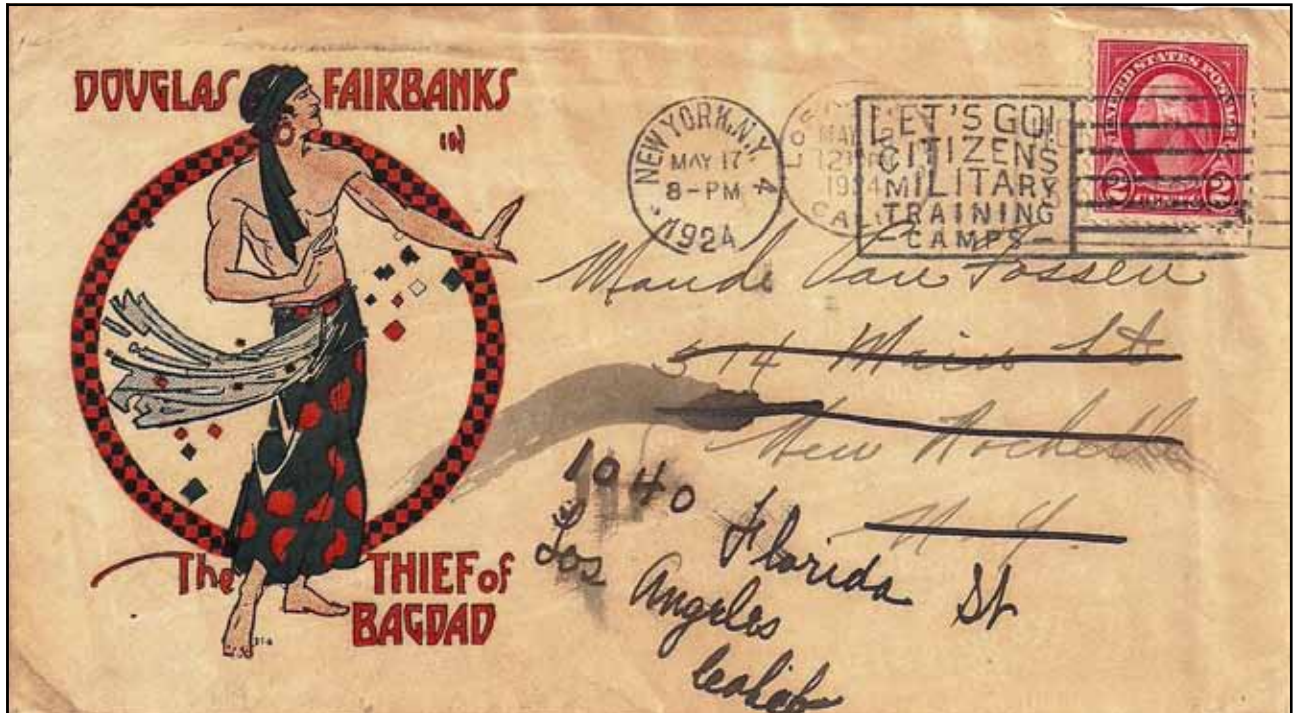 DOUGLAS FAIRBANKS
in
The THIEF of
BAGDAD
NEW YORK, N.Y. 4
MAY 17
8-PM
1924
LOS
MAY
12
1924
CAL
LET'S GO!
CITIZENS
MILITARY
TRAINING
-CAMPS-
UNITED STATES POSTAGE
2 2
Maude Van Fossen
574 Main St
New Rochelle
N.Y
1940 Florida St
Los Angeles